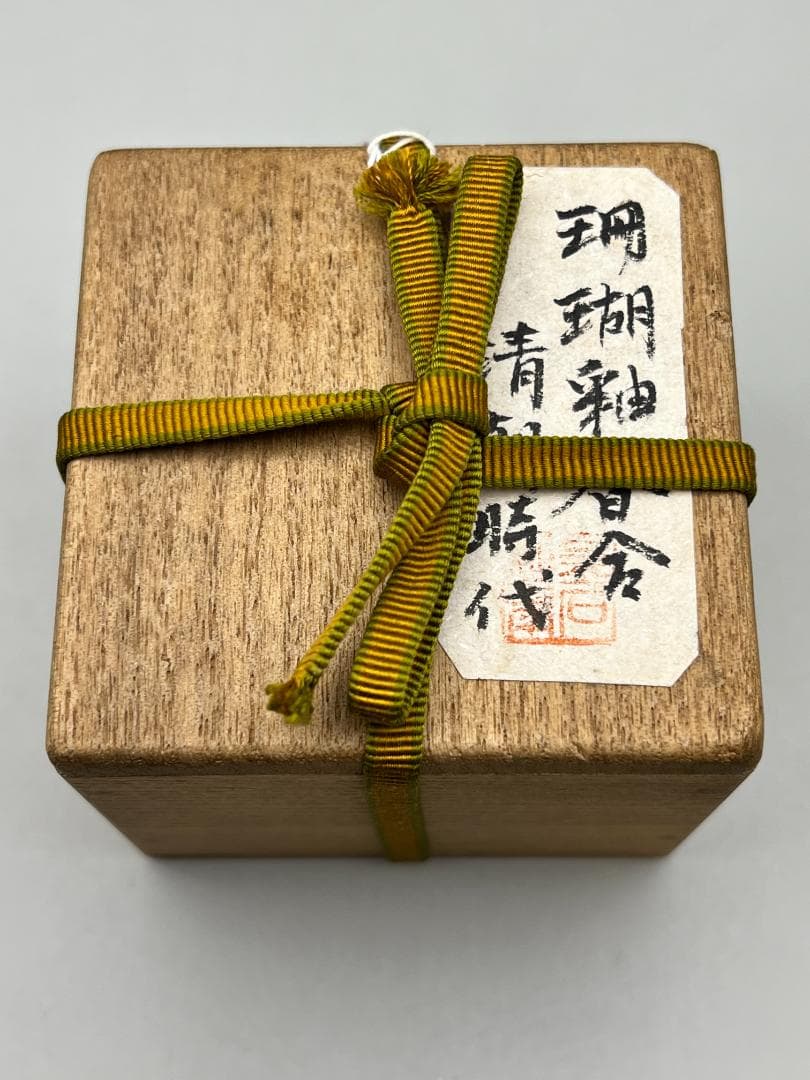 珊瑚釉香合
清朝時代